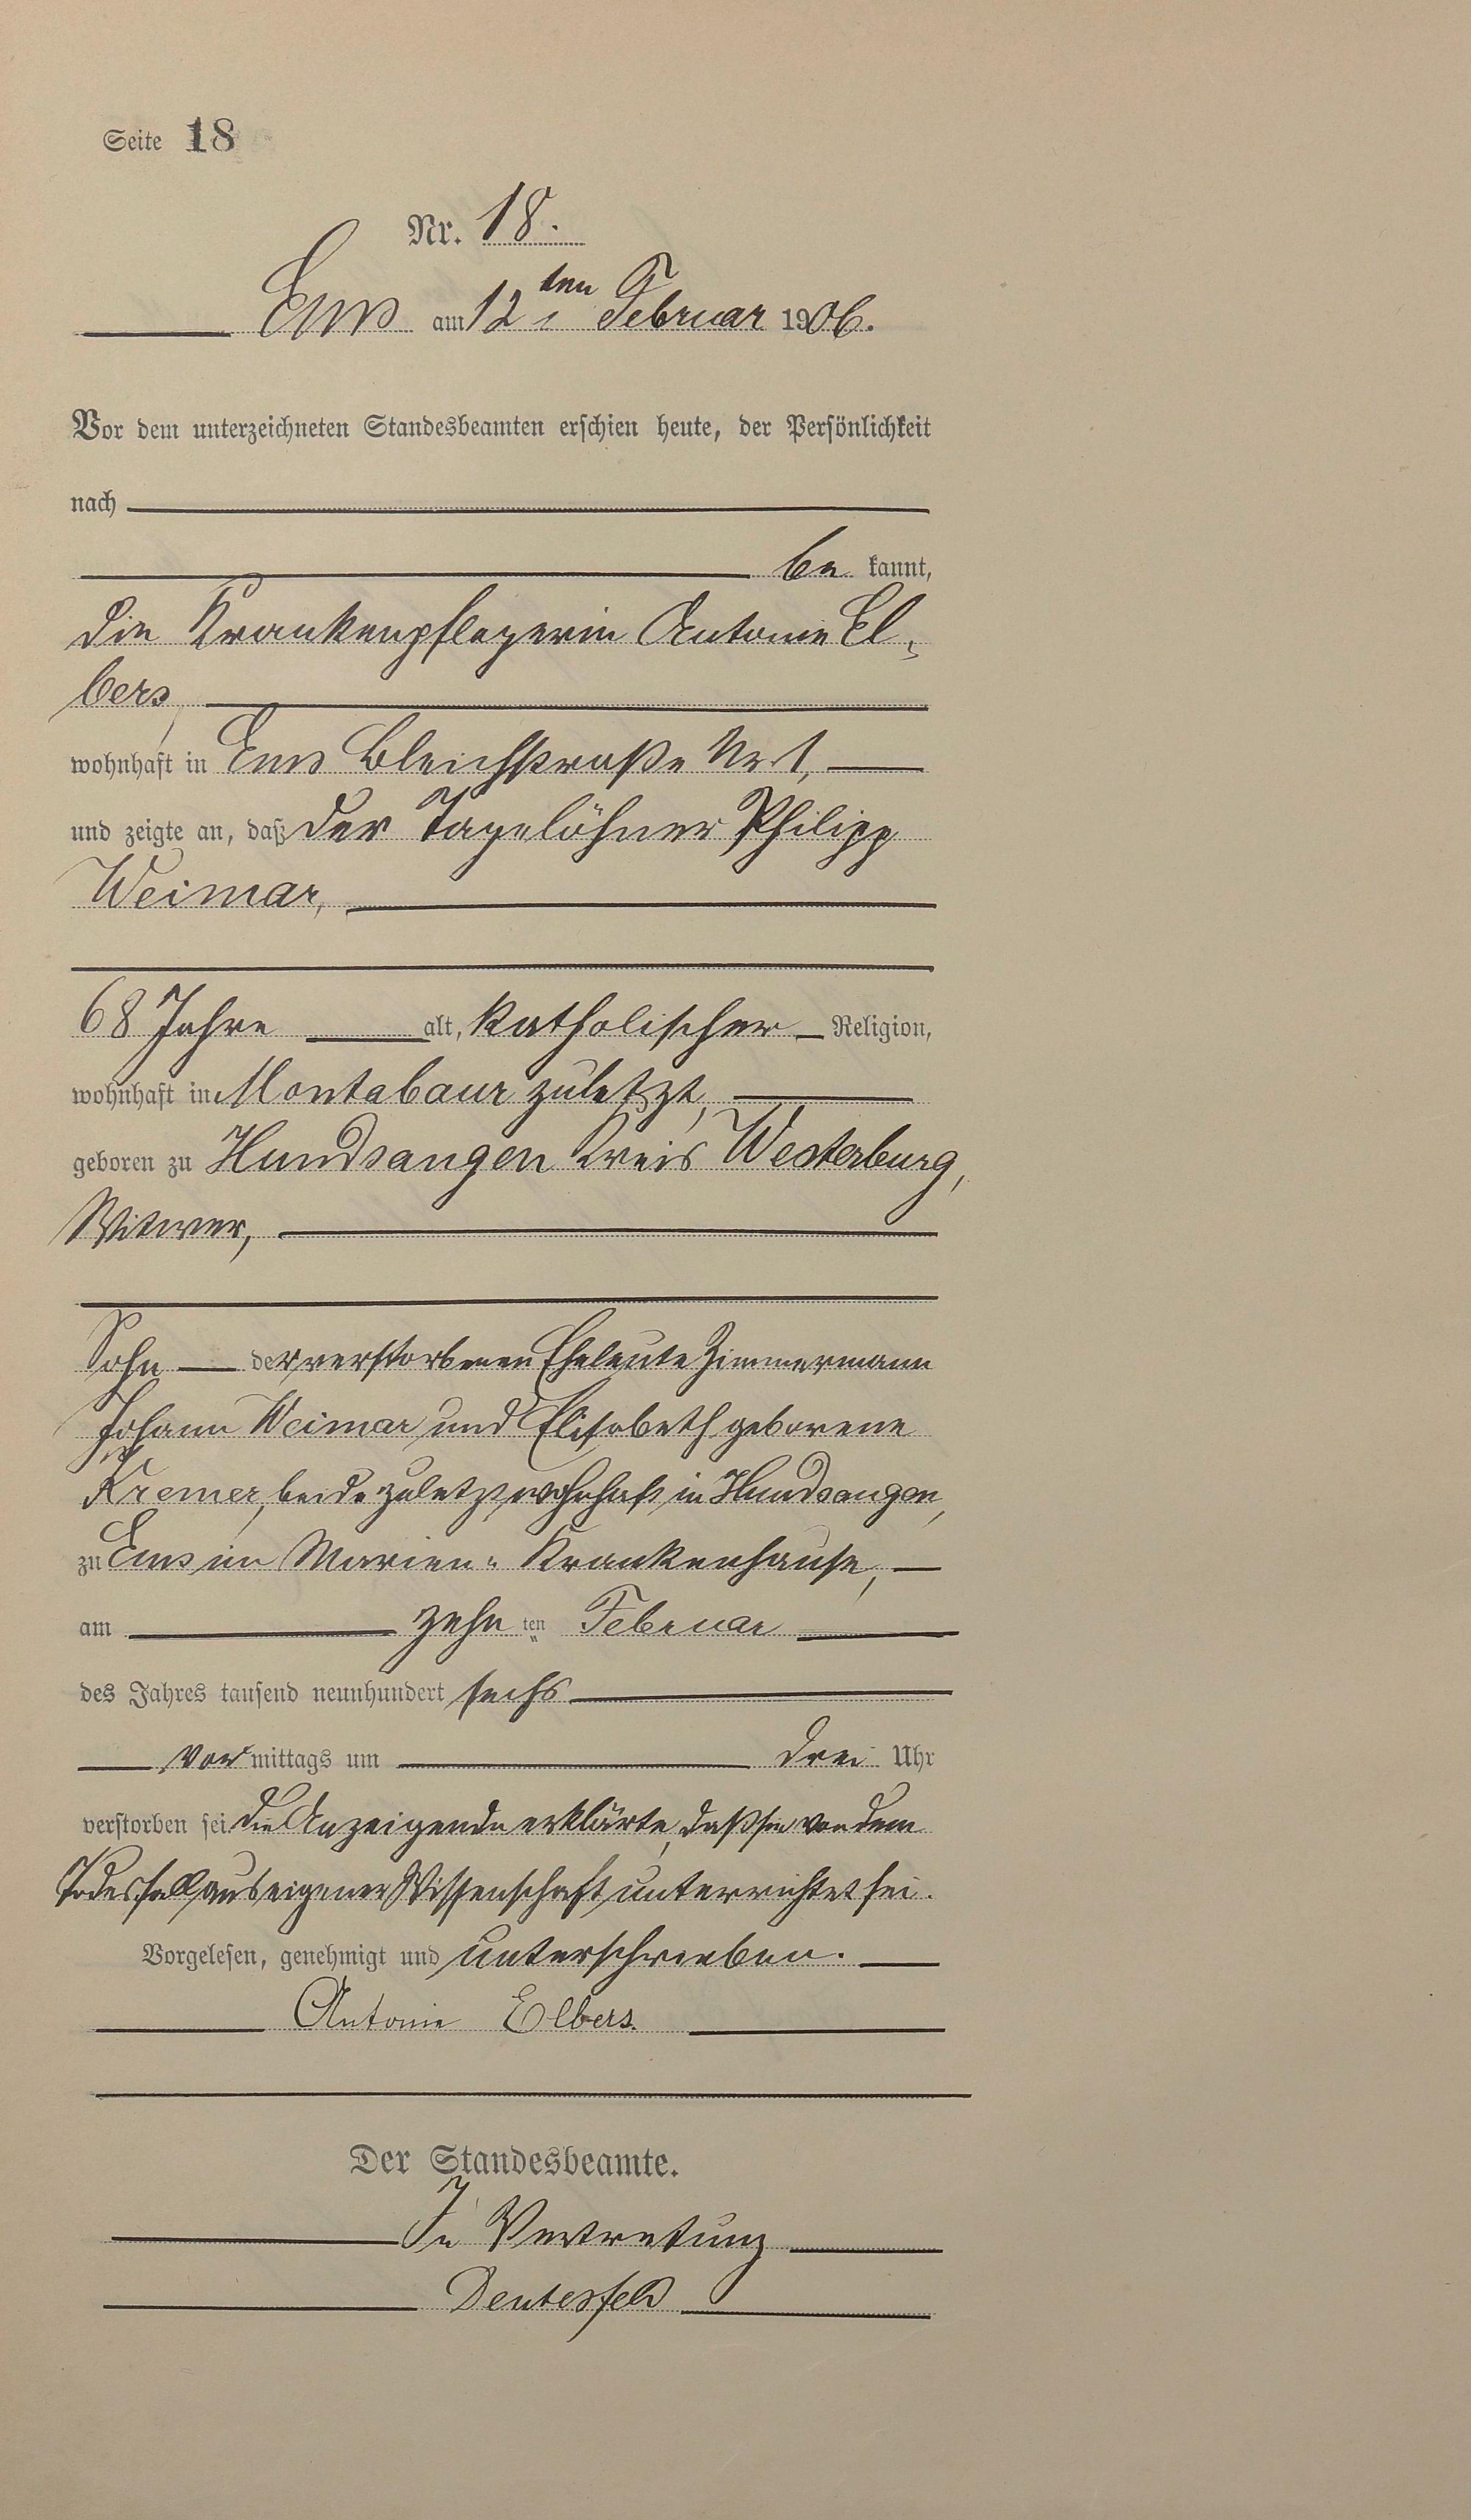 Seite 18
Nr. 18.
Ems am 12ten Februar 1906.
Vor dem unterzeichneten Standesbeamten erschien heute, der Persönlichkeit
nach
be kannt,
die Krankenpflegerin Antonie El-
bers,
wohnhaft in Ems Bleichstraße Nr. 1,
und zeigte an, daß der Tagelöhner Philipp
Weimar,
68 Jahre alt, katholischer Religion,
wohnhaft in Montabaur zuletzt,
geboren zu Hundsangen Kreis Westerburg,
Witwer,
Sohn der verstorbenen Eheleute Zimmermann
Johann Weimar und Elisabeth geborene
Kremer, beide zuletzt wohnhaft in Hundsangen,
zu Ems im Marien-Krankenhause,
am zehnten Februar
des Jahres tausend neunhundert sechs
Vor mittags um drei Uhr
verstorben sei. Die Anzeigende erklärte, daß sie von dem
Todesfall aus eigener Wissenschaft unterrichtet sei.
Vorgelesen, genehmigt und unterschrieben.
Antonie Elbers.
Der Standesbeamte.
In Vertretung